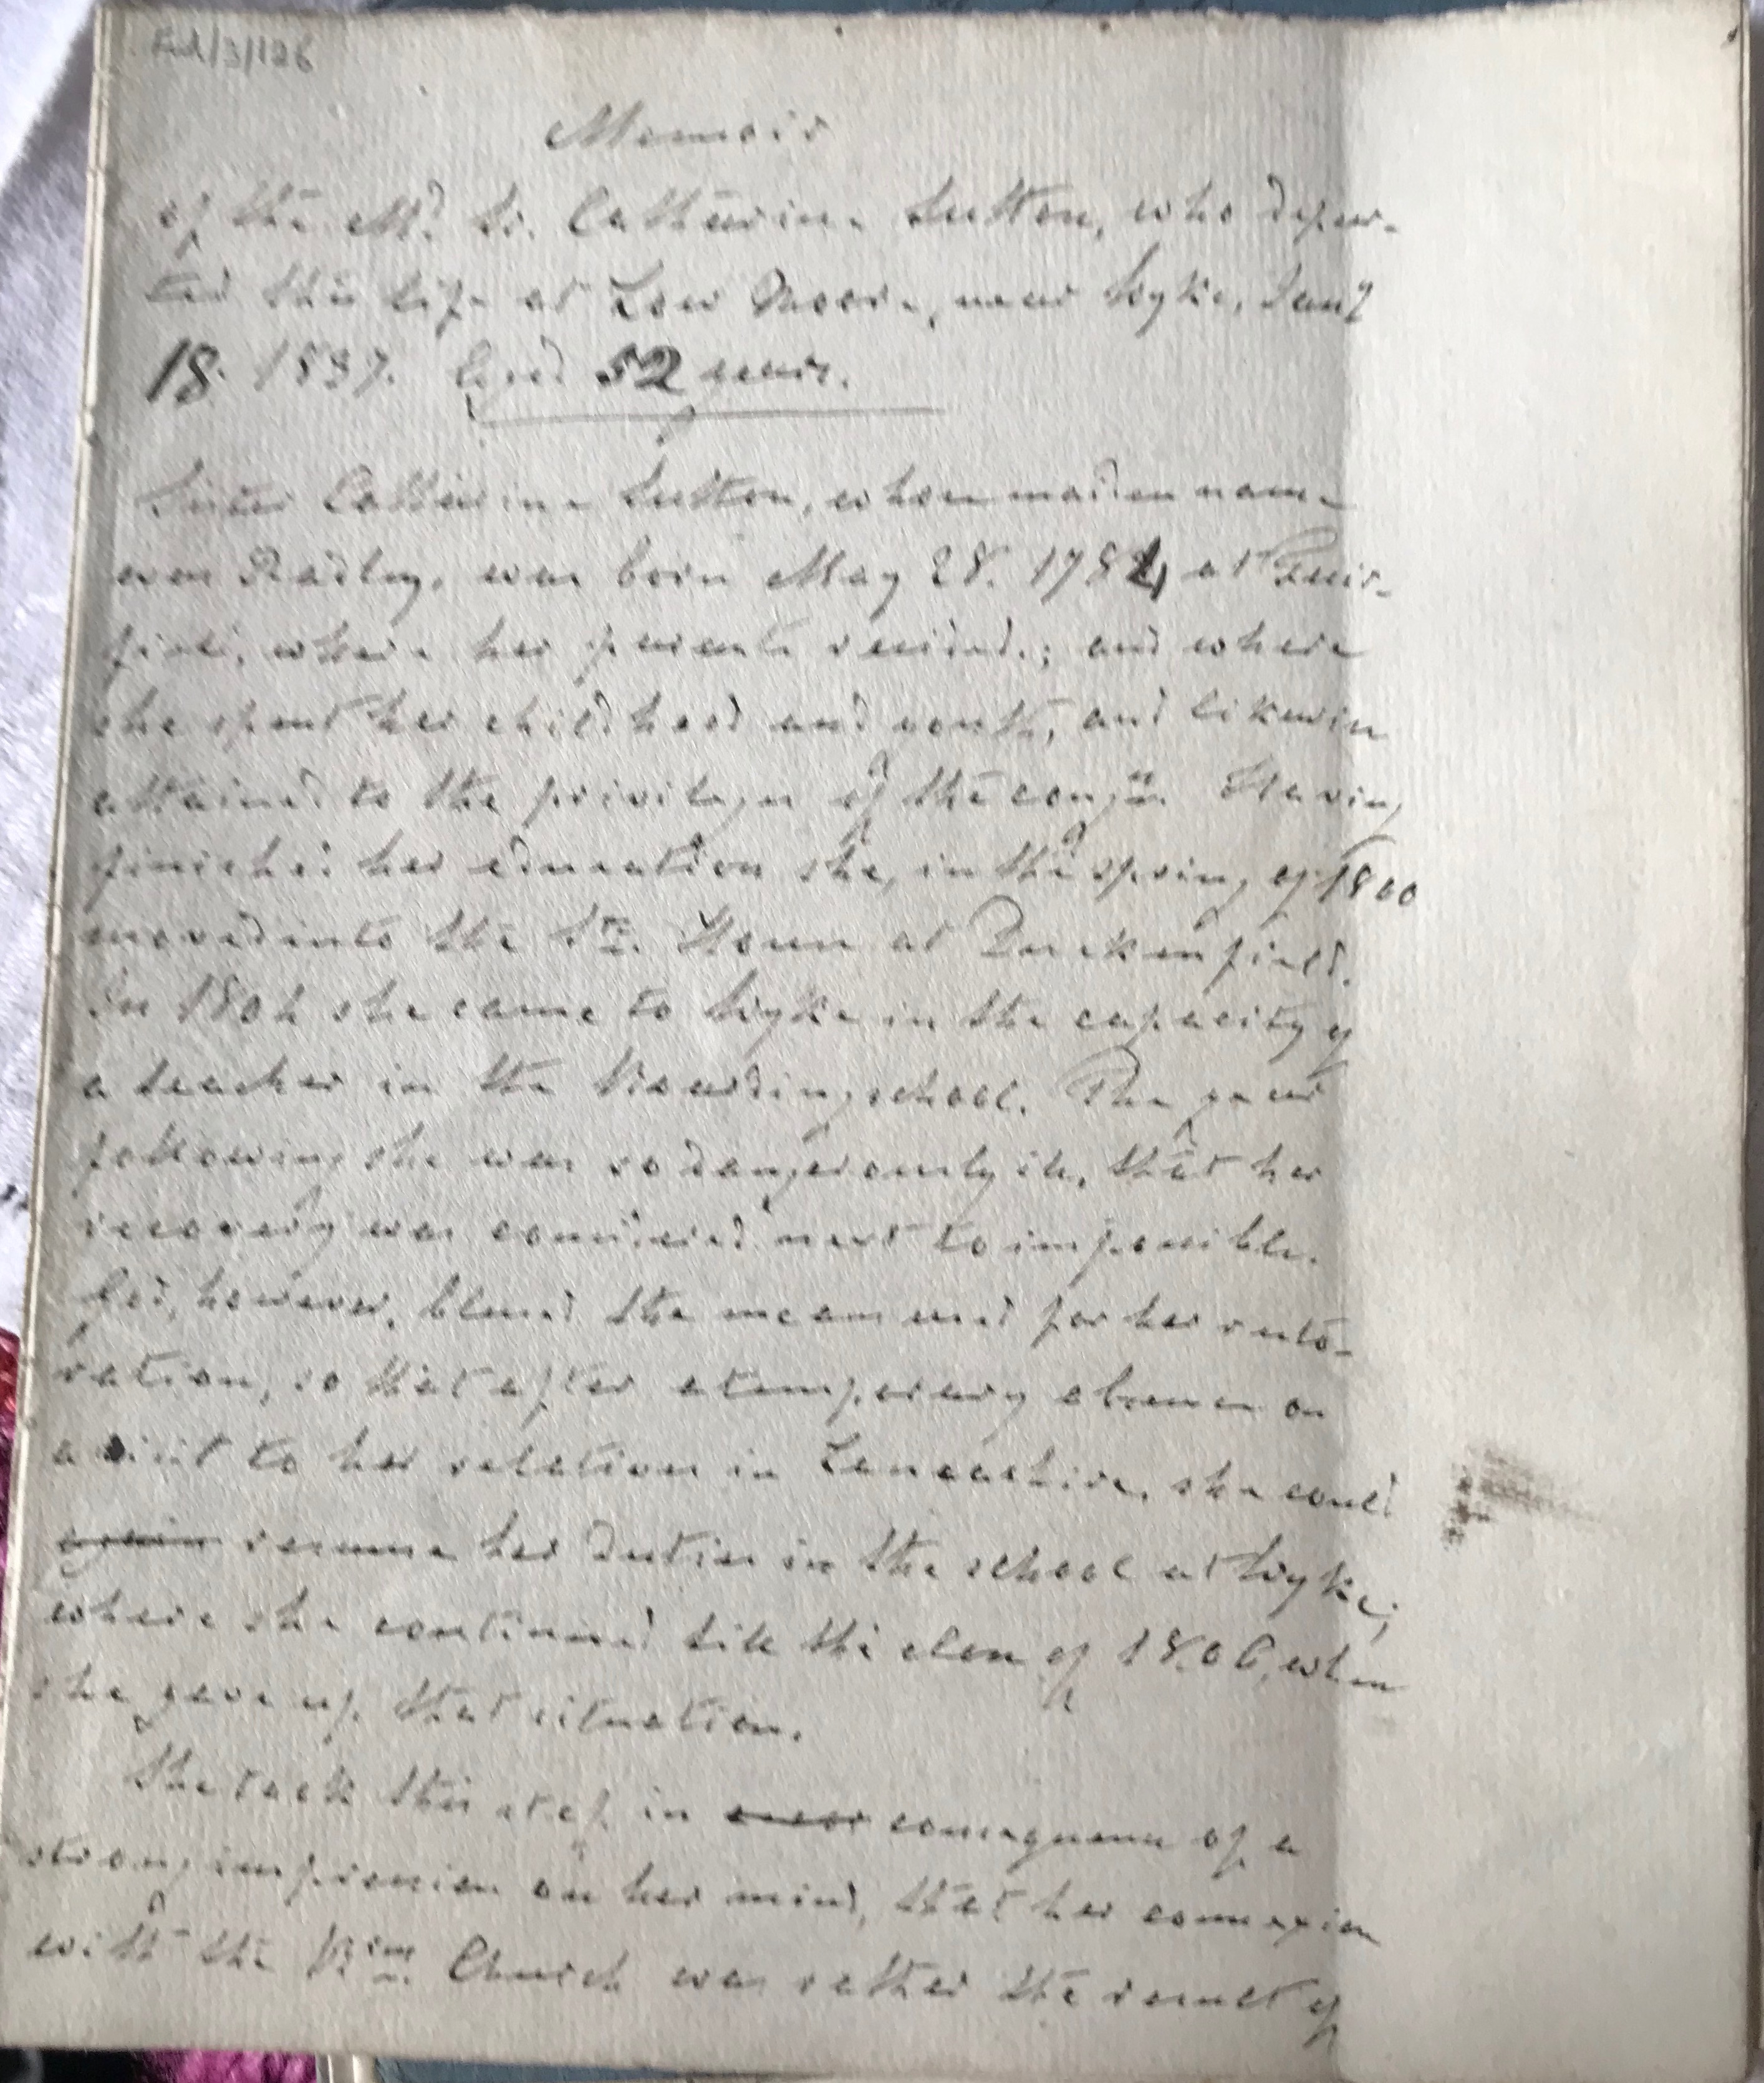 Ful/3/126
Memoir
of the Md. Sr. Catherine Sutton, who depar-
ted this life at Low Moore, near Wyke, Jany
18. 1837. Aged 52 years.
Sister Catherine Sutton, whose maiden name
was Radley, was born May 28. 1784, at Fair-
field, where her parents resided; and where
she spent her childhood and youth, and likewise
attained to the privileges of the congn. Having
finished her education she, in the spring of 1800
moved into the Srs. House at Duckenfield.
In 1804 she came to Wyke in the capacity of
a teacher in the Boardingschool. The year
following she was so dangerously ill, that her
recovery was considered next to impossible.
God, however, blessed the means used for her resto-
ration, so that after a temporary absence on
a visit to her relations in Lancashire, she could
again resume her duties in the school at Wyke;
where she continued till the close of 1806, when
she gave up that situation.
She took this step in consequence of a
strong impression on her mind, that her connexion
with the Brn. Church was rather the result of